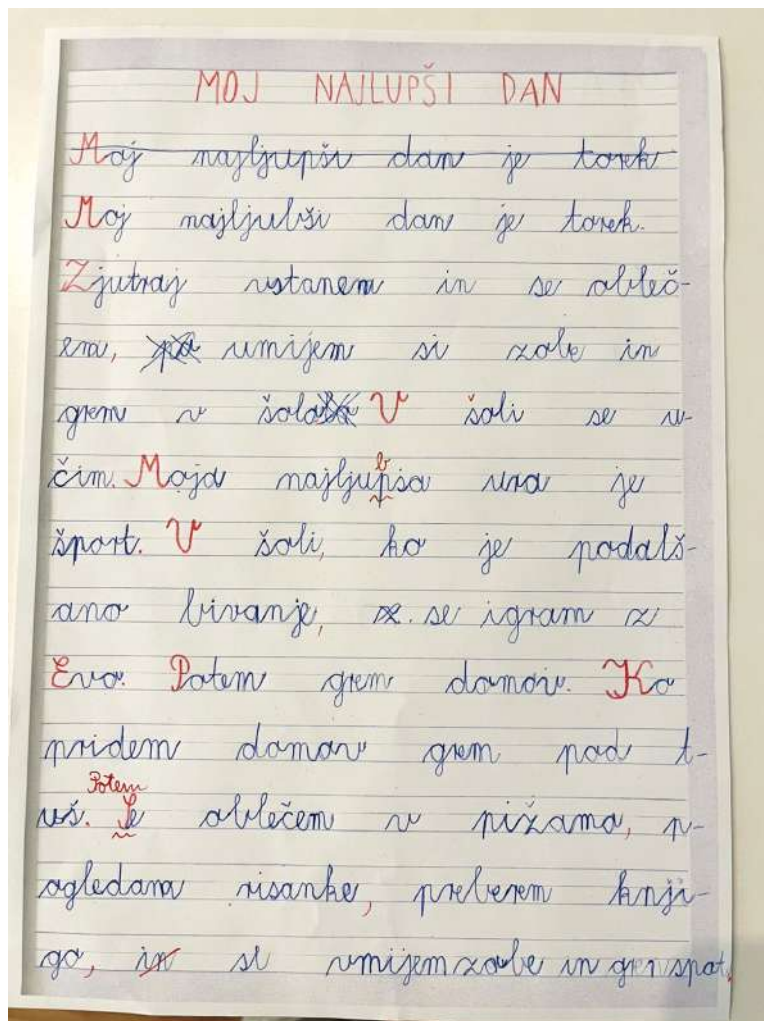 MOJ NAJLUPŠI DAN
Moj najljupši dan je torek
Moj najljubši dan je torek.
Zjutraj vstanem in se obleč-
em, pa umijem si zobe in
grem v šolo V šoli se u-
čim. Moja najljupša ura je
b
šport. V šoli, ko je podalš-
ano bivanje, se igram z
Evo. Potem grem domov. Ko
pridem domov grem pod t-
Potem
uš. Se oblečem v pižamo, p-
ogledam risanke, preberem knji-
go, in si umijem zobe in grem spat.